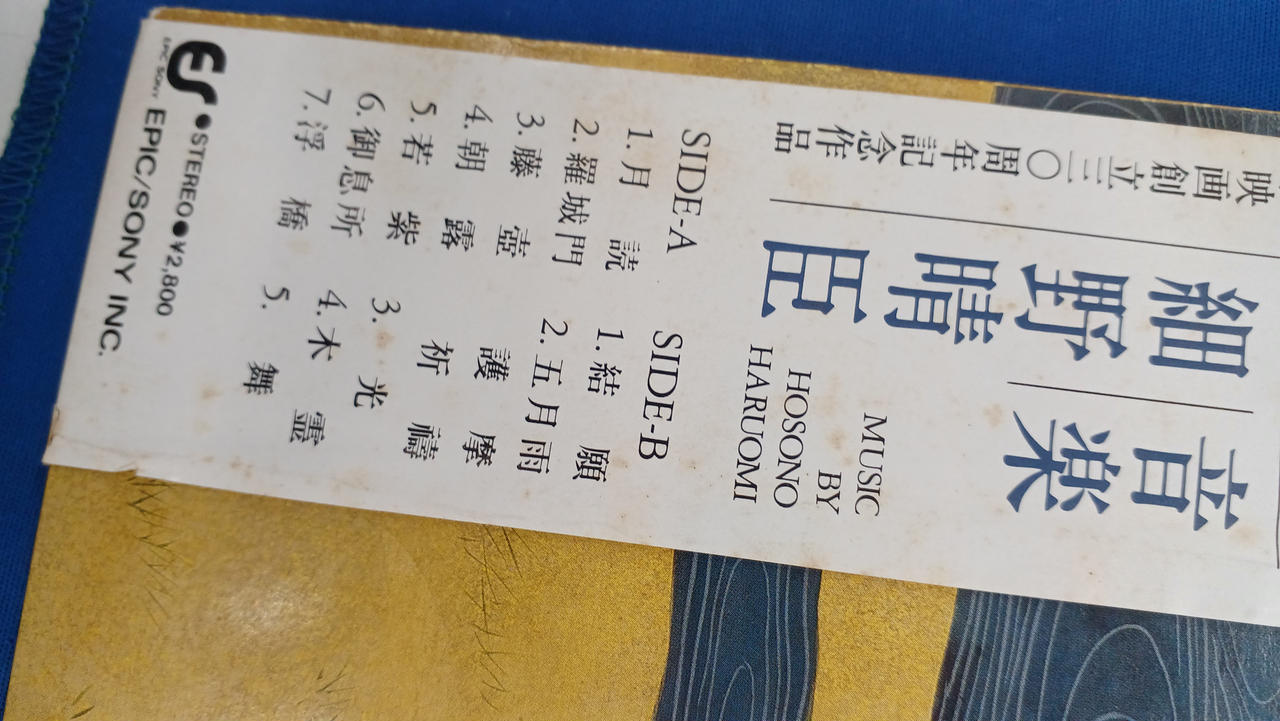 音楽
細野晴臣
映画創立三〇周年記念作品
MUSIC
BY
HOSONO
HARUOMI
SIDE-A
1.月読
2.羅城門
3.藤壺
4.朝露
5.若紫
6.御息所
7.浮橋
SIDE-B
1.結願
2.五月雨
護摩
祈禱
3.光
4.木霊
5.舞
EPIC SONY
●STEREO●¥2,800
EPIC/SONY INC.